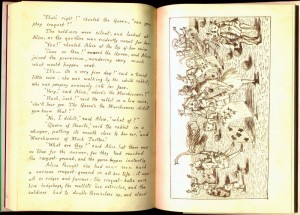 "That's right!" shouted the Queen, "can you
play croquet?"
The soldiers were silent, and looked at
Alice, as the question was evidently meant for her.
"Yes!" shouted Alice at the top of her voice.
"Come on then!" roared the Queen, and Alice
joined the procession, wondering very much
what would happen next.
"It's—it's a very fine day!" said a timid
little voice: she was walking by the white rabbit,
who was peeping anxiously into her face.
"Very," said Alice, "where's the Marchioness?"
"Hush, hush!" said the rabbit in a low voice,
"she'll hear you. The Queen's the Marchioness: didn't
you know that?"
"No, I didn't," said Alice, "what of?"
"Queen of Hearts," said the rabbit in a
whisper, putting its mouth close to her ear, "and
Marchioness of Mock Turtles."
"What are they?" said Alice, but there was
no time for the answer, for they had reached
the croquet-ground, and the game began instantly.
Alice thought she had never seen such
a curious croquet-ground in all her life: it was
all in ridges and furrows: the croquet-balls were
live hedgehogs, the mallets live ostriches, and the
soldiers had to double themselves up, and stand